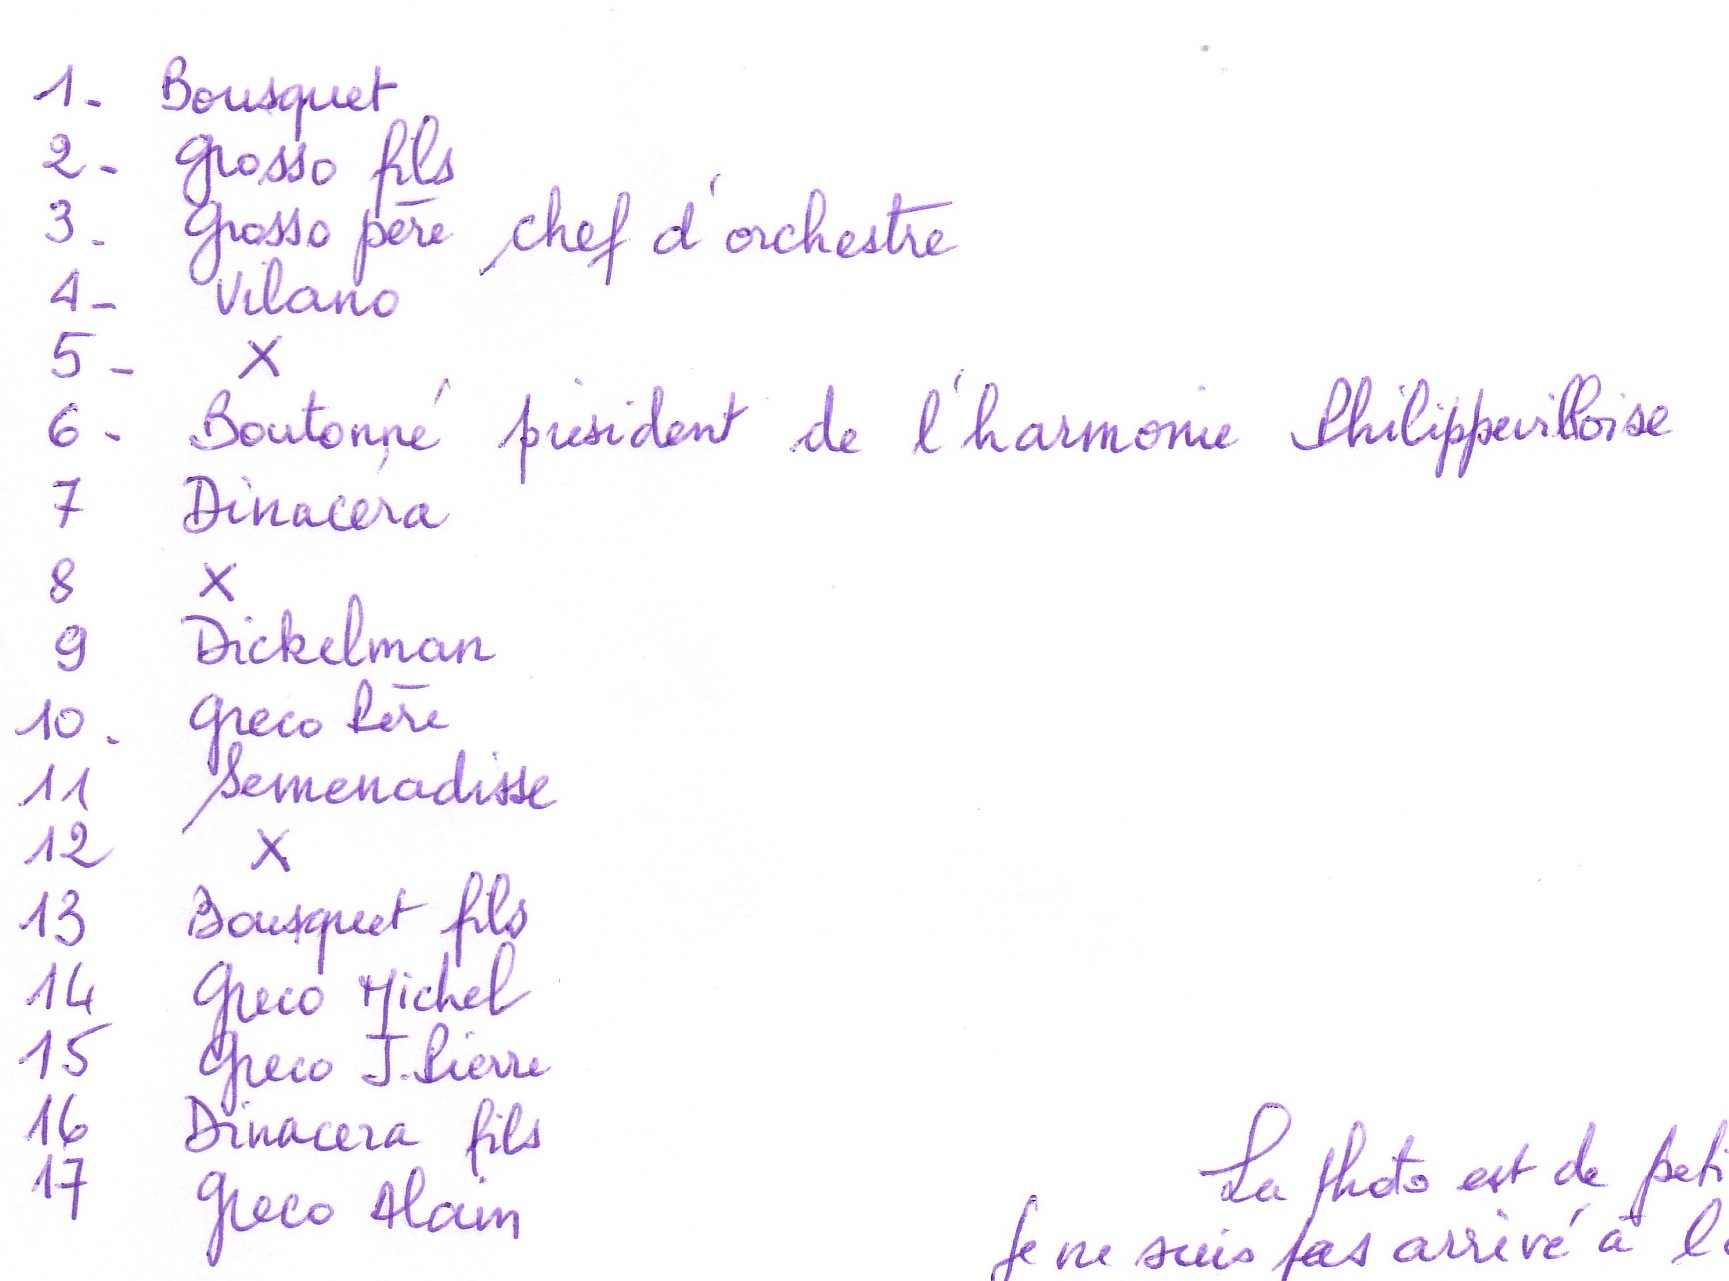 1- Bousquet
2- Grosso fils
3- Grosso père chef d'orchestre
4- Vilano
5- X
6- Boutonné président de l'harmonie Philippevilloise
7 Dinacéra
8 X
9 Dickelman
10- Greco Père
11 Semenadisse
12 X
13 Bousquet fils
14 Greco Michel
15 Greco J. Pierre
16 Dinacera fils
17 Greco Alain
La photo est de peti
Je ne suis pas arrivé à l